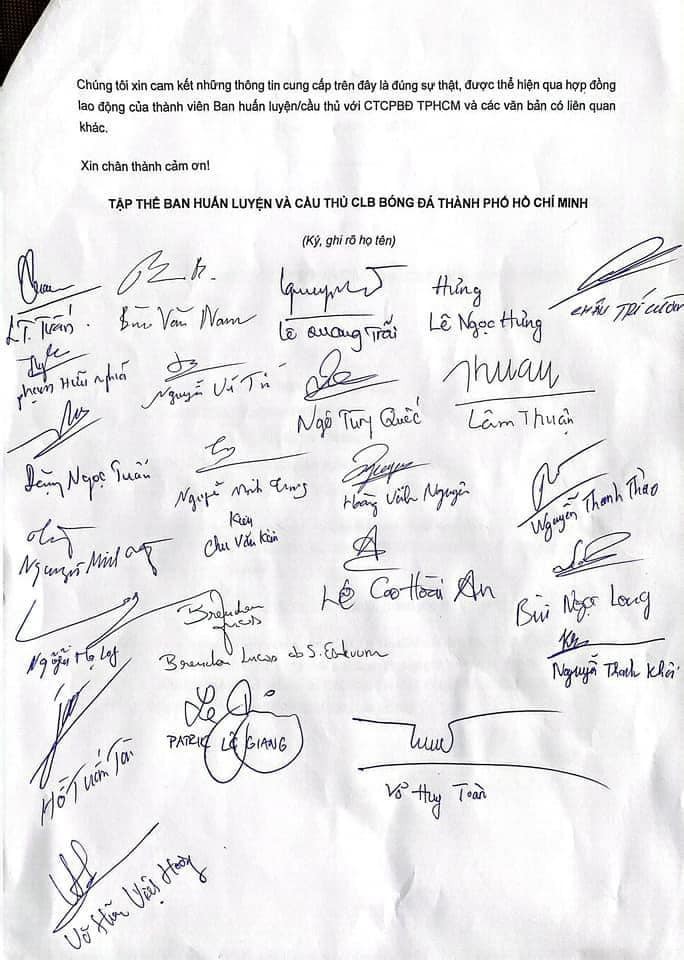 Chúng tôi xin cam kết những thông tin cung cấp trên đây là đúng sự thật, được thể hiện qua hợp đồng
lao động của thành viên Ban huấn luyện/cầu thủ với CTCPBĐ TPHCM và các văn bản có liên quan
khác.
Xin chân thành cảm ơn!
TẬP THỂ BAN HUẤN LUYỆN VÀ CẦU THỦ CLB BÓNG ĐÁ THÀNH PHỐ HỒ CHÍ MINH
(Ký, ghi rõ họ tên)
Hưng
L.T. Tuấn. Bùi Văn Nam Lê Quang Trãi Lê Ngọc Hưng CHÂU TRÍ CƯỜNG
Thuan
Phạm Hữu Nghĩa Nguyễn Vĩ Ngô Tùng Quốc Lâm Thuận
Đặng Ngọc Tuấn Nguyễn Minh Trung Hoàng Vĩnh Nguyên Nguyễn Thanh Thảo
Kiên
Chu Văn Kiên
Nguyễn Minh Lê Cao Hoài An Bùi Ngọc Long
Brendan
Lucas
Nguyễn Hạ Long Brendan Lucas Nguyễn Thanh Khôi
Hồ Tuấn Tài PATRIK LÊ GIANG
Võ Huy Toàn
Võ Hữu Việt Hoàng